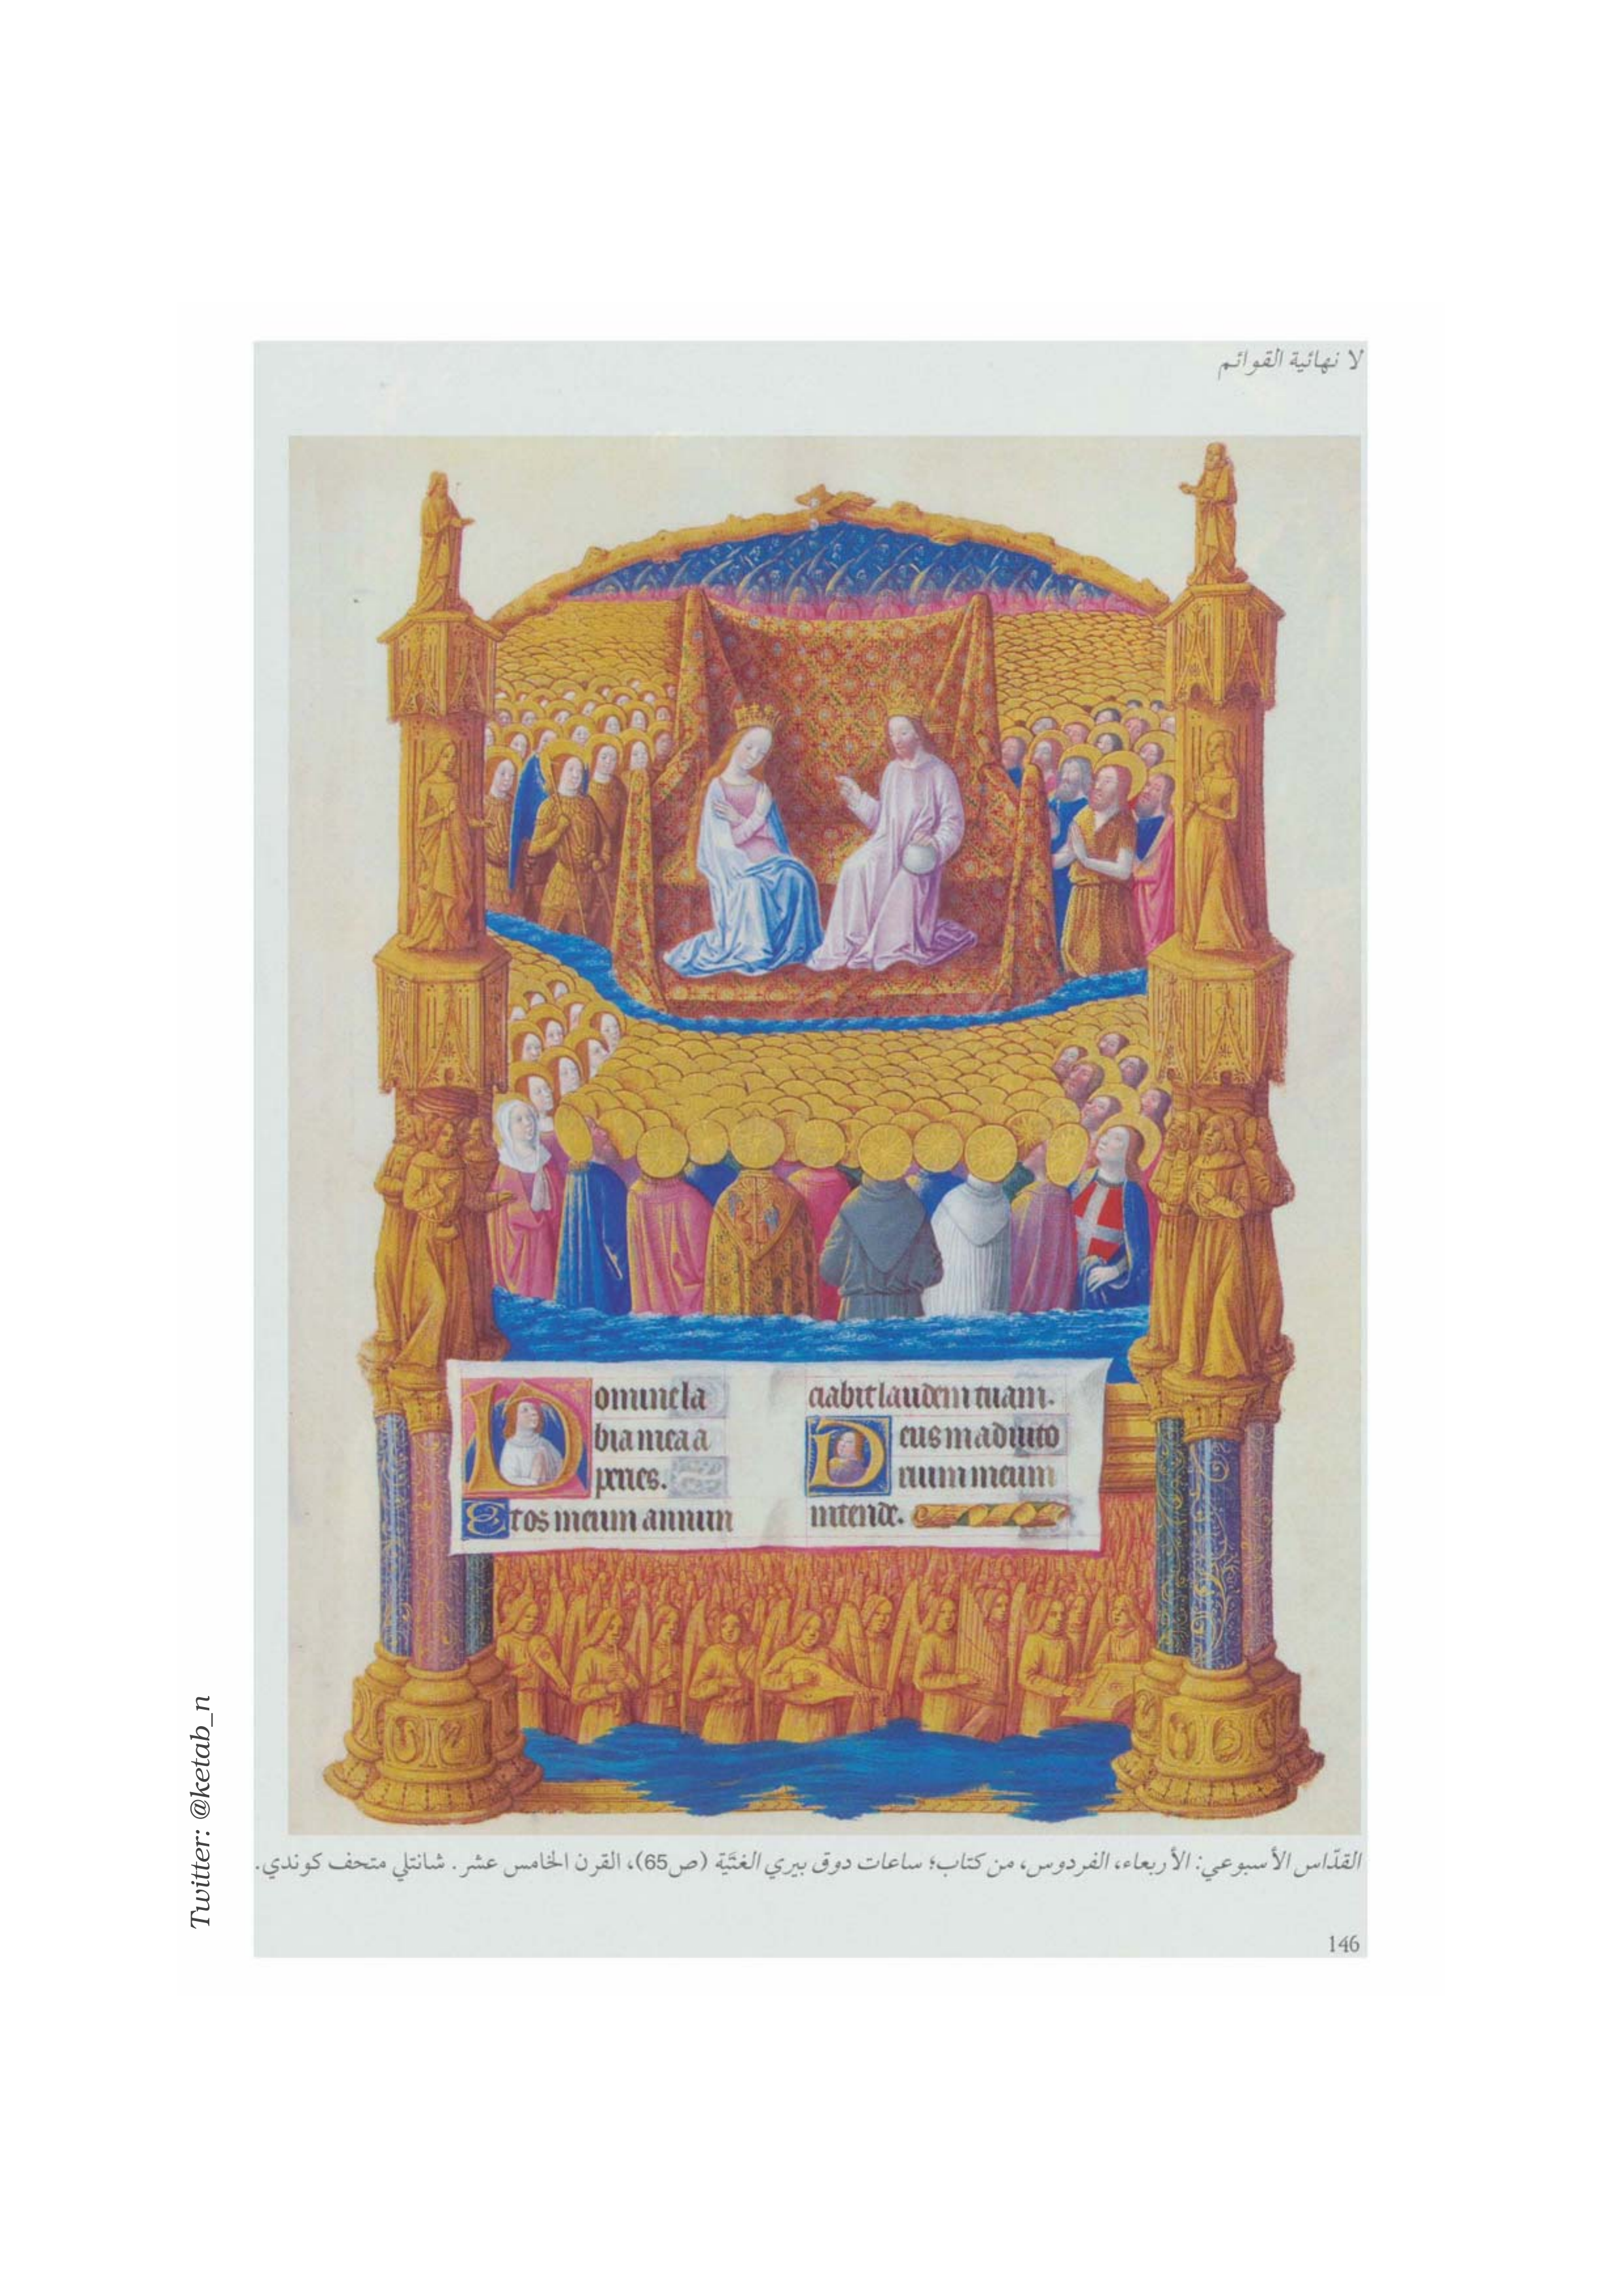 لا نهائية القوائم
Domine la
bia mea a
peries.
Et os meum annun
ciabit laudem tuam.
Deus in adiuto
rium meum
intende.
القدّاس الأسبوعي: الأربعاء، الفردوس، من كتاب؛ ساعات دوق بيري الغنيّة (ص65)، القرن الخامس عشر. شانتلي متحف كوندي.
146
Twitter: @ketab_n